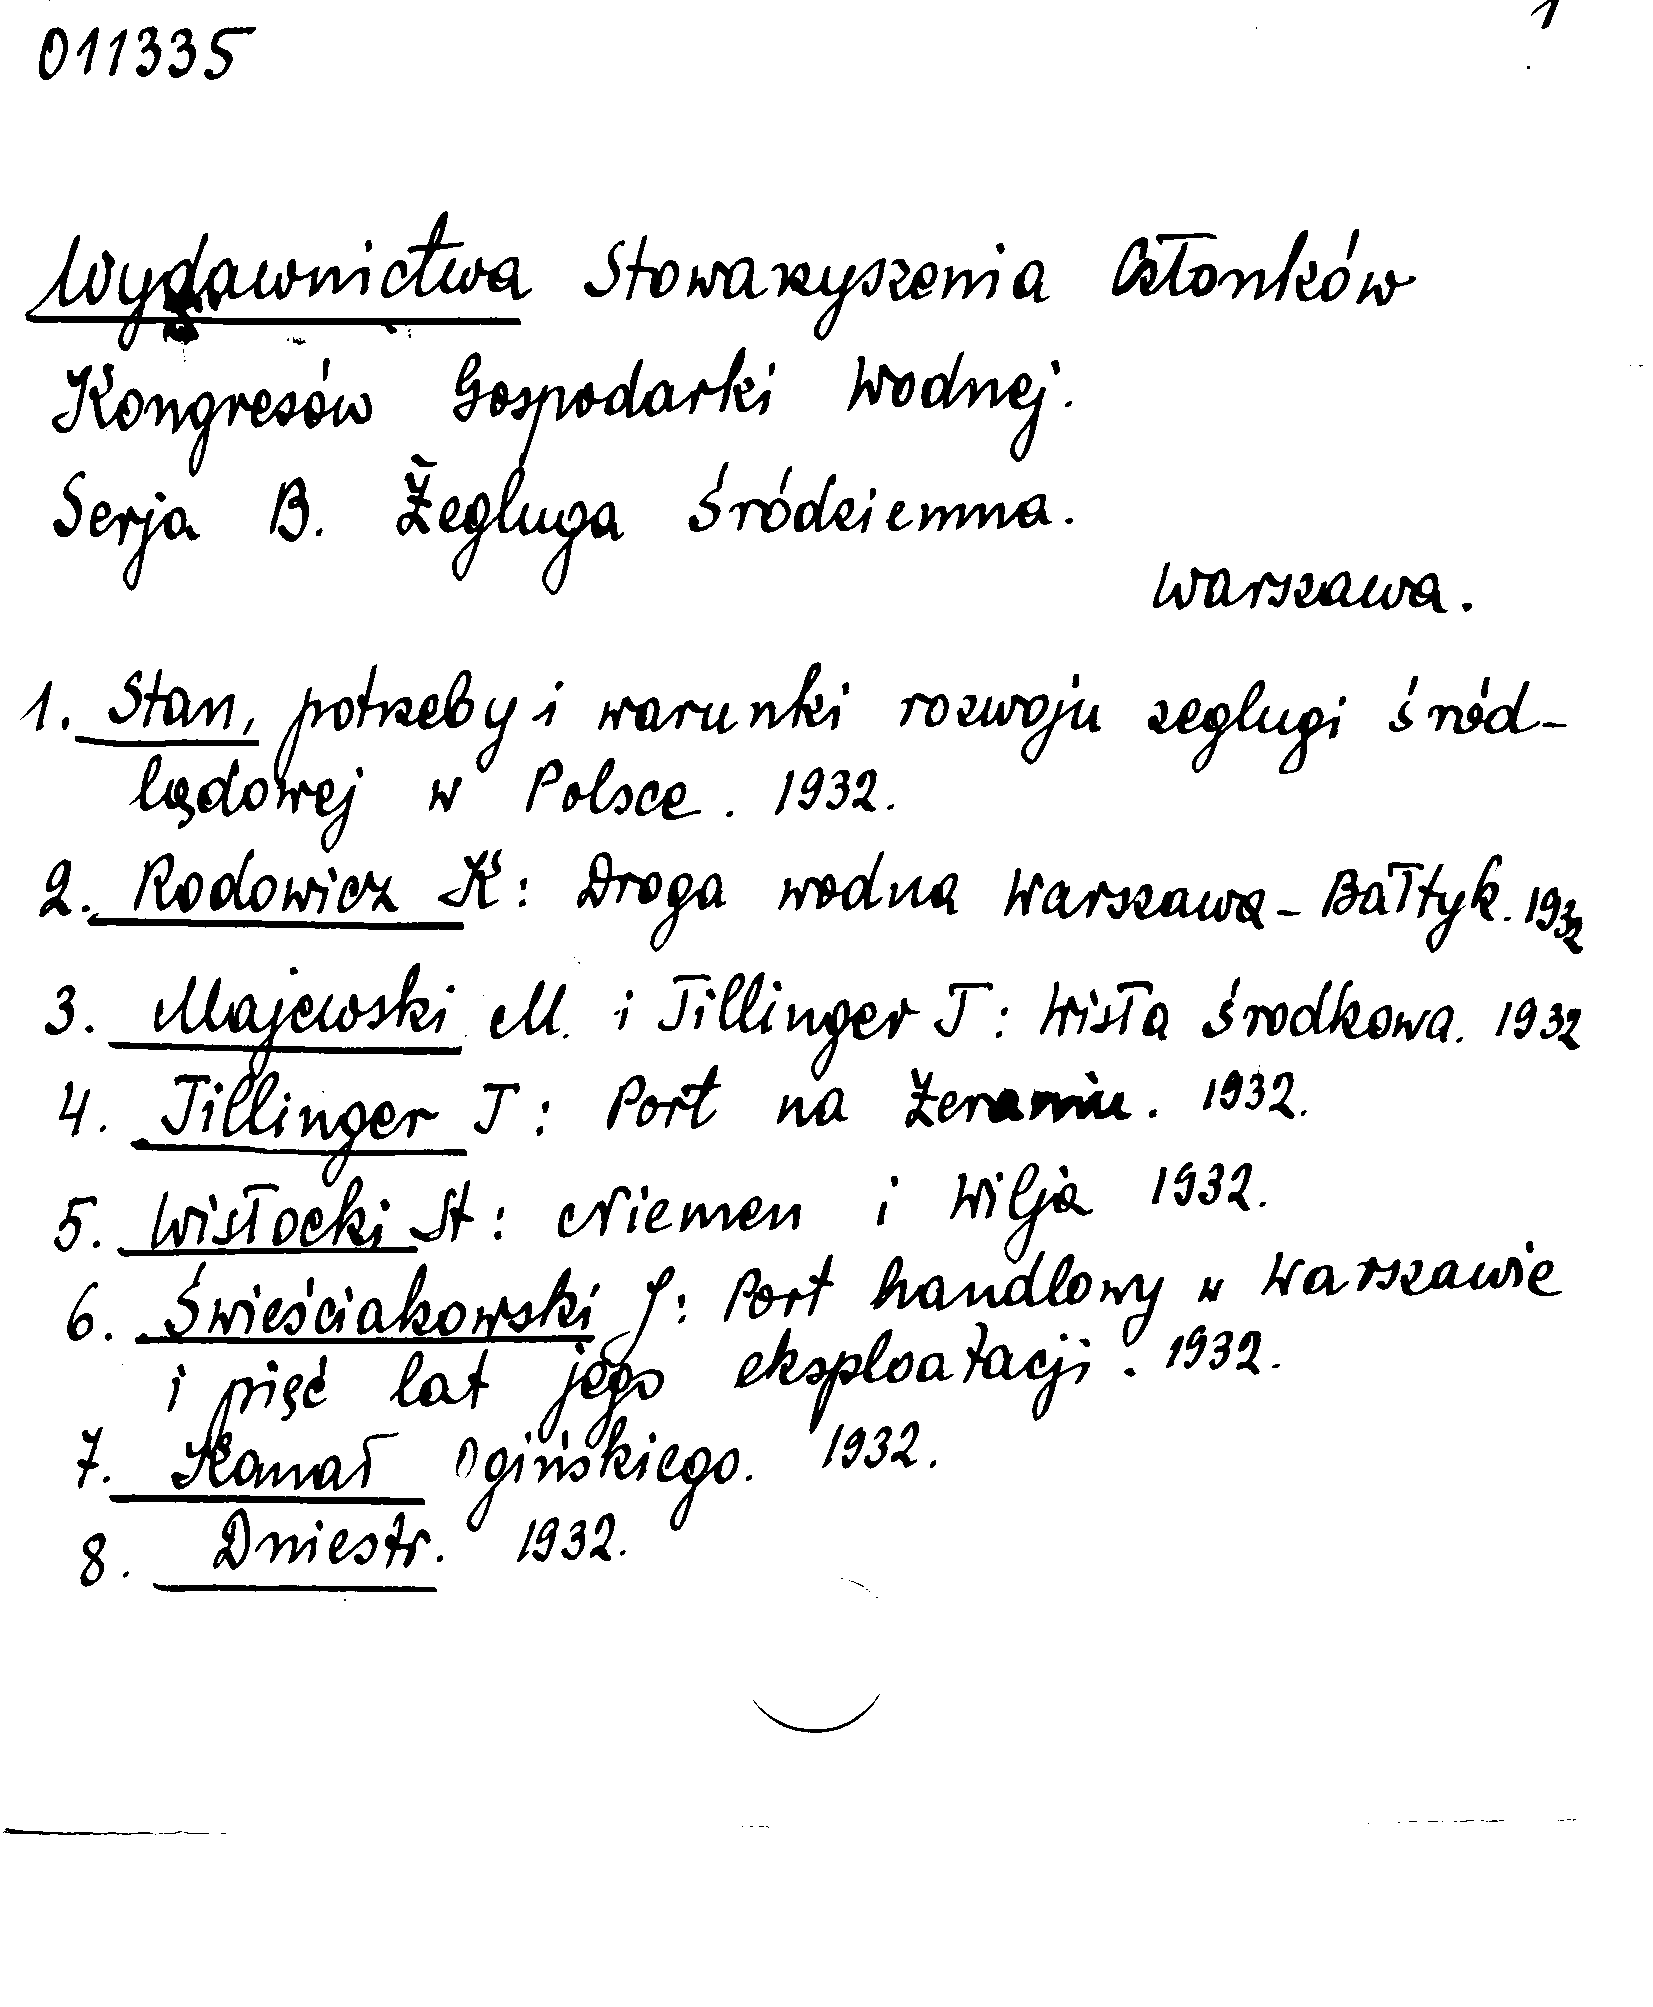 011335
1
Wydawnictwa Stowarzyszenia Członków
Kongresów Gospodarki Wodnej.
Serja B. Żegluga Śródziemna.
Warszawa.
1. Stan, potrzeby i warunki rozwoju zeglugi śród-
lądowej w Polsce. 1932.
2. Rodowicz K: Droga wodna Warszawa - Bałtyk. 1932
3. Majewski M. i Tillinger T: Wisła Środkowa. 1932
4. Tillinger T: Port na Żeraniu. 1932.
5. Wisłocki St: Niemen i Wilja 1932.
6. Świeściakowski J: Port handlowy w Warszawie
i pięć lat jego eksploatacji. 1932.
7. Kanał Ogińskiego. 1932.
8. Dniestr. 1932.